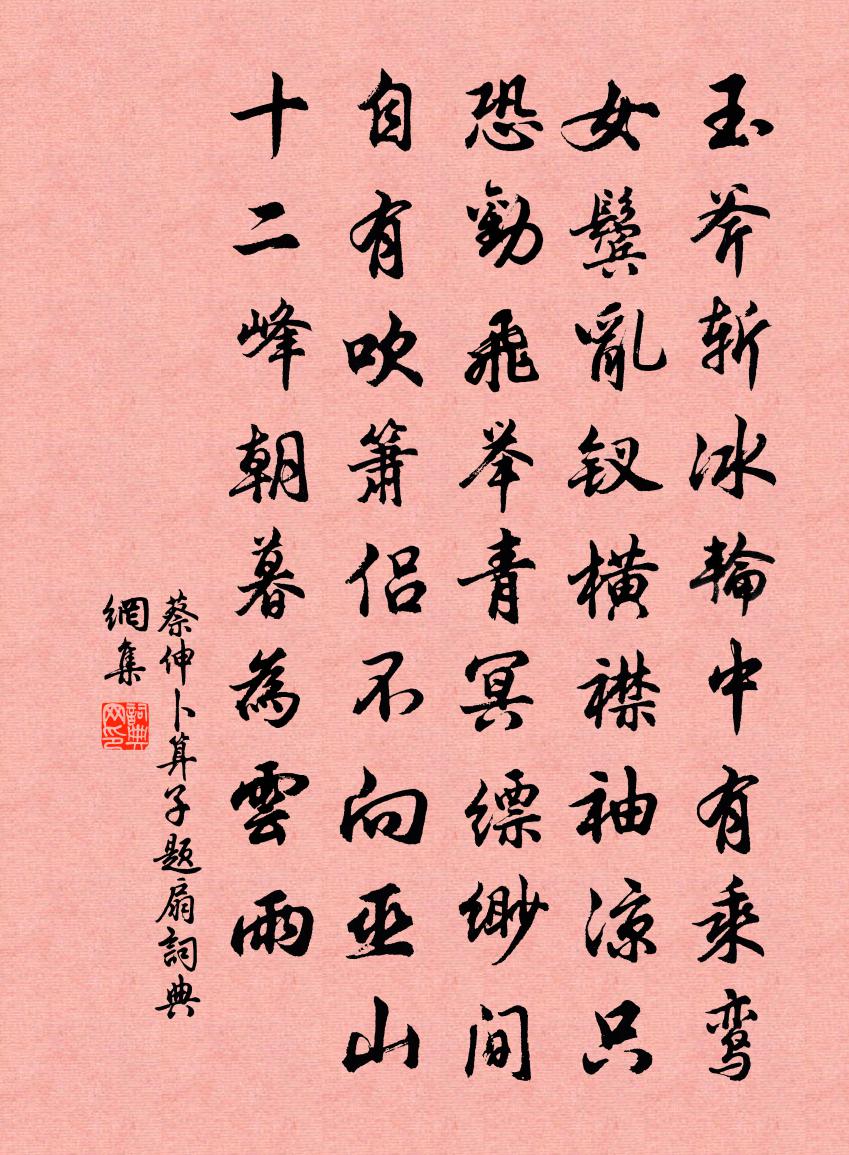 玉斧斩冰輪中有乘鸾
女鬓亂钗横襟袖凉只
恐勸飛举青冥缥缈间
自有吹箫侣不向巫山
十二峰朝暮為雲雨
蔡伸卜算子题扇詞典
網集
詞典网印